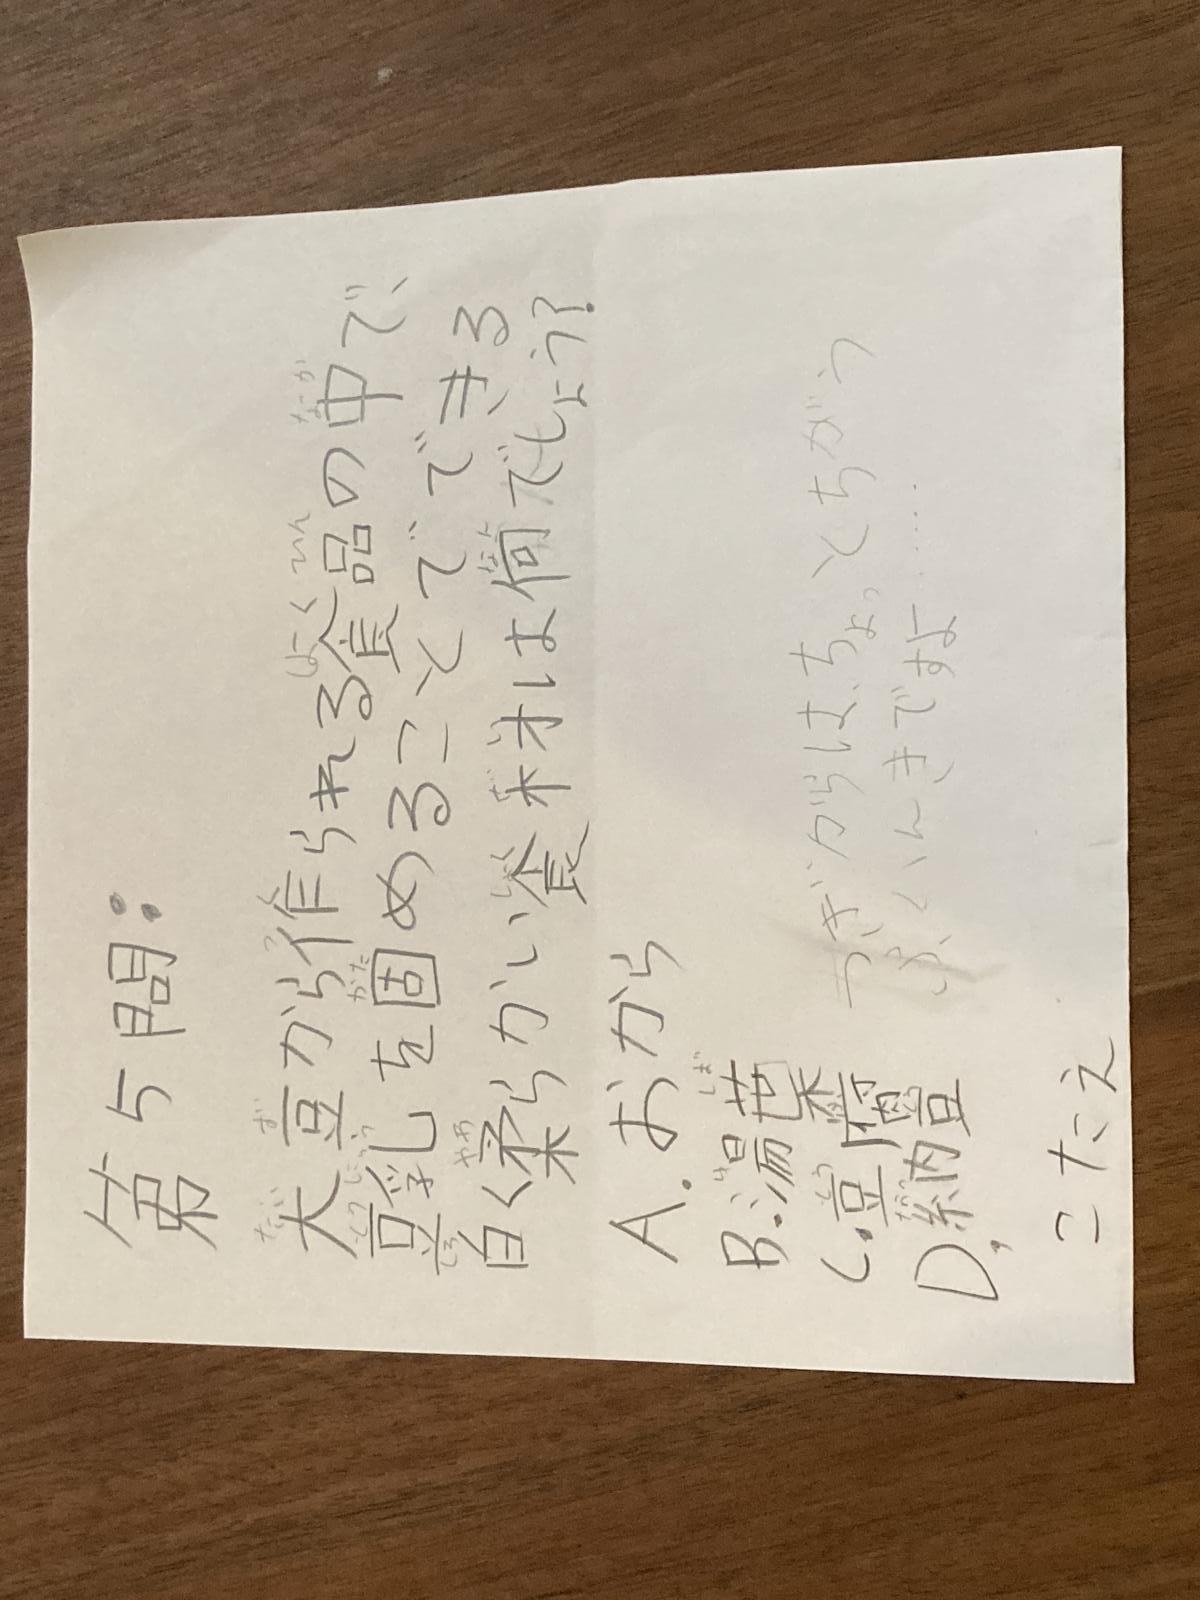 第5問:
大豆から作られる食品の中で、
豆乳を固めることでできる
白く柔らかい食材は何でしょう?
A.おから
B.湯葉
C.豆腐
D,納豆
つぎからは、ちょっとちがう
ふんいきですよ……
こたえ